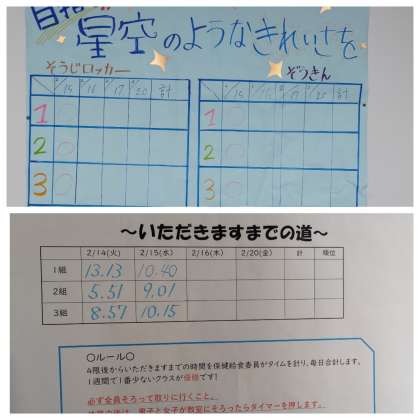 目指
星空のようなきれいさを
そうじロッカー
ぞうきん
/15 /16 /17 /20 計
/15 /16 /17 /20 計
1 1
2 2
3 3
～いただきますまでの道～
2/14(火) 2/15(水) 2/16(木) 2/20(金) 計 順位
1組 13.13 10.40
2組 5.51 9.01
3組 8.57 10.15
〇ルール〇
4限後からいただきますまでの時間を保健給食委員がタイムを計り、毎日合計します。
1週間で1番少ないクラスが優勝です!
必ず全員そろって取りに行くこと。
男子と女子が教室にそろったらタイマーを押します。